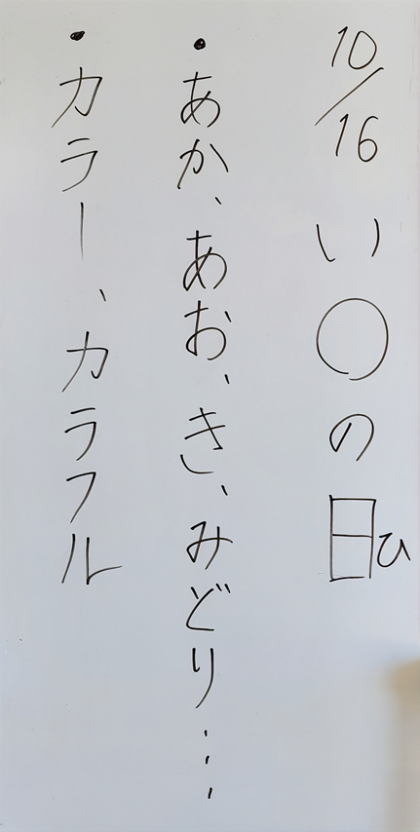 10/16 い〇の日ひ
・あか、あお、き、みどり…
・カラー、カラフル